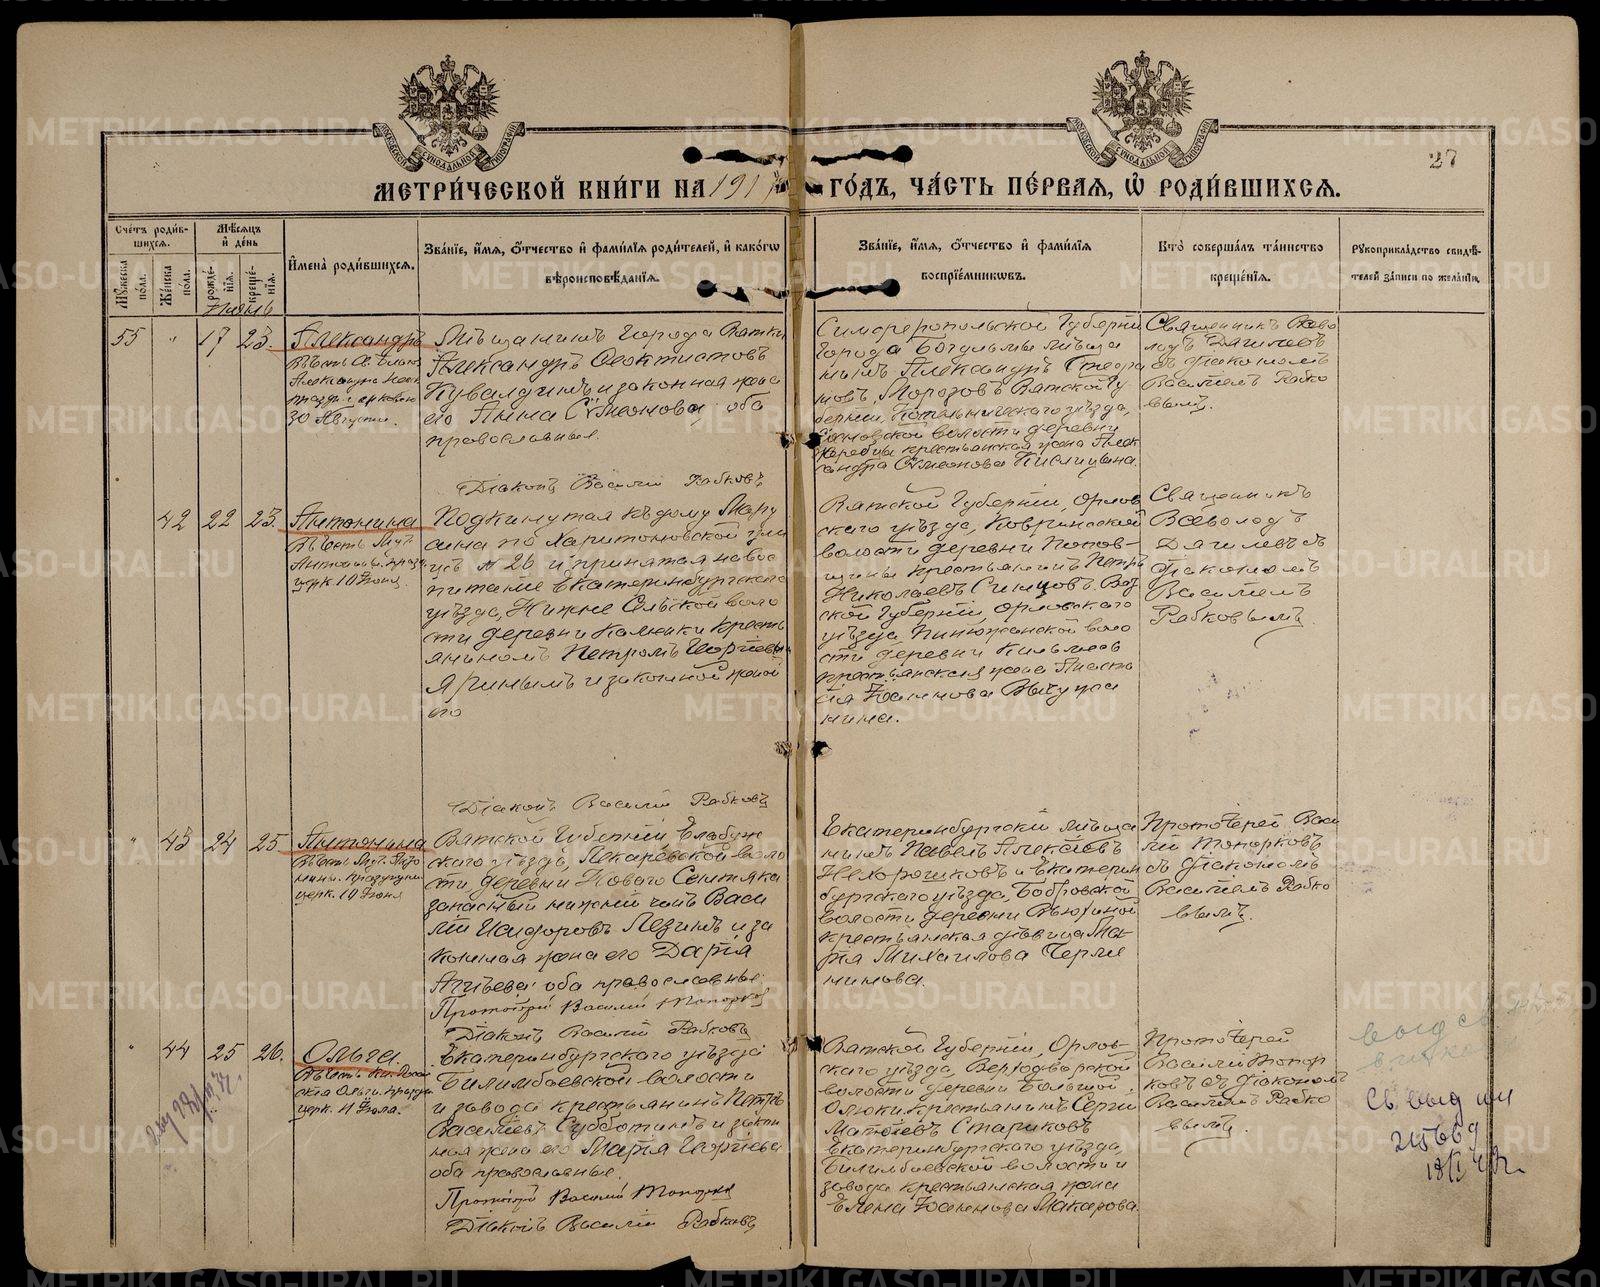 METRIKI.GASO-URAL.RU
МОСКОВСКОЙ СѴНОДАЛЬНОЙ ТИПОГРАФІИ
МОСКОВСКОЙ СѴНОДАЛЬНОЙ ТИПОГРАФІИ
27
МЕТРИ́ЧЕСКОЙ КНИ́ГИ НА 191
ГО́ДЪ, ЧА́СТЬ ПЕ́РВАѦ, Ѽ РОДИ́ВШИХСѦ.
Сче́тъ роди́в-
шихсѧ.
Мѣ́сѧцъ
и҆ де́нь
Му́жеска
по́ла.
Же́нска
по́ла.
рожде́-
нїѧ.
креще́-
нїѧ.
И҆мена̀ роди́вшихсѧ.
Зва́нїе, и҆́мѧ, ѻ҆́тчество и҆ фами́лїѧ роди́телей, и҆ како́гѡ
вѣроисповѣ́данїѧ.
Зва́нїе, и҆́мѧ, ѻ҆́тчество и҆ фами́лїѧ
воспрїе́мниковъ.
Кто̀ соверша́лъ та́инство
креще́нїѧ.
Рꙋкоприкла́дство свидѣ́-
телей за́писи по жела́нїю.
Іюнь
55 " 17 23. Александръ
30 Августа.
Мѣщанинъ города Вятки
Александръ Ѳеоктистовъ
Кувалдинъ и законная жена
его Анна Сѵмеонова; оба
православные.
Діаконъ Василій Рабковъ
Симферопольской губерніи
города Богульмы мѣща
нинъ Александръ Стефа
новъ Морозовъ Вятской гу
берніи, Котельническаго уѣзда,
волости деревни
крестьянская жена Алек
сандра Сѵмеонова Кислицына.
Священникъ Всево
лодъ Дягилевъ
съ діакономъ
Василіемъ Рабко
вымъ.
42 22 23. Антонина
церк. 10 Іюня
Подкинутая къ дому Мару
сина по Харитоновской ули
цѣ № 26 и принятая на вос
питаніе Екатеринбургскаго
уѣзда, Нижне Сельской воло
сти деревни Калюки кресть
яниномъ Петромъ Георгіевы
Яринымъ и законной женой
его
Діаконъ Василій Рабковъ
Вятской губерніи, Орлов
скаго уѣзда, Ковринской
волости деревни Попов-
щины крестьянинъ Петръ
Николаевъ Синцовъ. Вят
ской губерніи, Орловскаго
уѣзда Пинюжанской воло
сти деревни
крестьянская жена Анаста
ія Іоаннова Вычужа
нина.
Священникъ
Всеволодъ
Дягилевъ съ
діакономъ
Василіемъ
Рабковымъ.
" 43 24 25 Антонина
церк. 10 Іюня
Вятской губерніи Елабуж
скаго уѣзда, Пекаревской воло
сти, деревни Новаго Сентяка
запасный нижній чинъ Васи
лій Исидоровъ Лезинъ и за
конная жена его Дарія
Агиѣева; оба православные.
Протоіерей Василій Топорковъ
Діаконъ Василій Рабковъ
Екатеринбургскій мѣща
нинъ Павелъ Алексѣевъ
Нехорошковъ и Екатерин
бургскаго уѣзда, Бобровской
волости деревни Вьюхиной
крестьянская дѣвица Ма-
рія Михаилова Черме
нинова.
Протоіерей Васи
лій Топорковъ
съ діакономъ
Василіемъ Рабко
вымъ.
" 44 25 26. Ольга
церк. 11 Іюля.
Екатеринбургскаго уѣзда
Билимбаевской волости
и завода крестьянинъ Петръ
Василіевъ Субботинъ и закон
ная жена его Марія Георгіева
оба православные.
Протоіерей Василій Топорковъ
Діаконъ Василій Рабковъ
Вятской губерніи, Орлов-
скаго уѣзда, Верходворской
волости деревни Большой
Олюки крестьянинъ Сергій
Матѳіевъ Стариковъ
Екатеринбургскаго уѣзда,
Билимбаевской волости и
завода крестьянская жена
Елена Іоаннова Макарова.
Протоіерей
Василій Топор
ковъ съ діаконом
Василіемъ Рабко
вымъ.